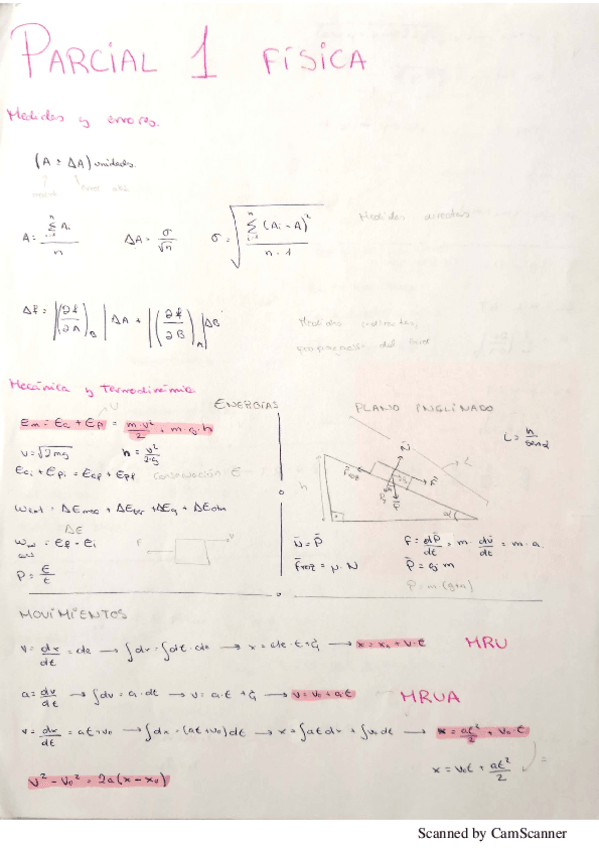 PARCIAL 1 FÍSICA
Medidas y errores.
(A ± ΔA) unidades.
A = Σ Ai / n    ΔA = σ/√n    σ = √( Σ (Ai - A)² / n-1 )    Medidas directas
Δf = |(∂f/∂A)B| ΔA + |(∂f/∂B)A| ΔB    Medidas indirectas,
propagación del error
Mecánica y Termodinámica
ENERGÍAS
Em = Ec + Ep = m·v²/2 + m·g·h
U
v = √2mg    h = v²/2·g
Eci + Epi = Ecf + Epf    Conservación E
ΔE
F    v
P = E/t
PLANO INCLINADO
L = h/senα
h    N    L    α
N̄ = P̄    F = dP̄/dt = m · dv̄/dt = m · a
Froz = μ · N    P̄ = g · m
MOVIMIENTOS
v = dx/dt = cte → ∫dx = ∫dt · cte → x = cte · t + C₁ → x = x₀ + v·t    MRU
a = dv/dt → ∫dv = a · dt → v = a·t + C₁ → v = v₀ + at    MRUA
v = dx/dt = at + v₀ → ∫dx = (at + v₀)dt → x = ∫at dx + ∫v₀ dt → x = at²/2 + v₀·t
x = v₀t + at²/2
v² - v₀² = 2a(x - x₀)
Scanned by CamScanner